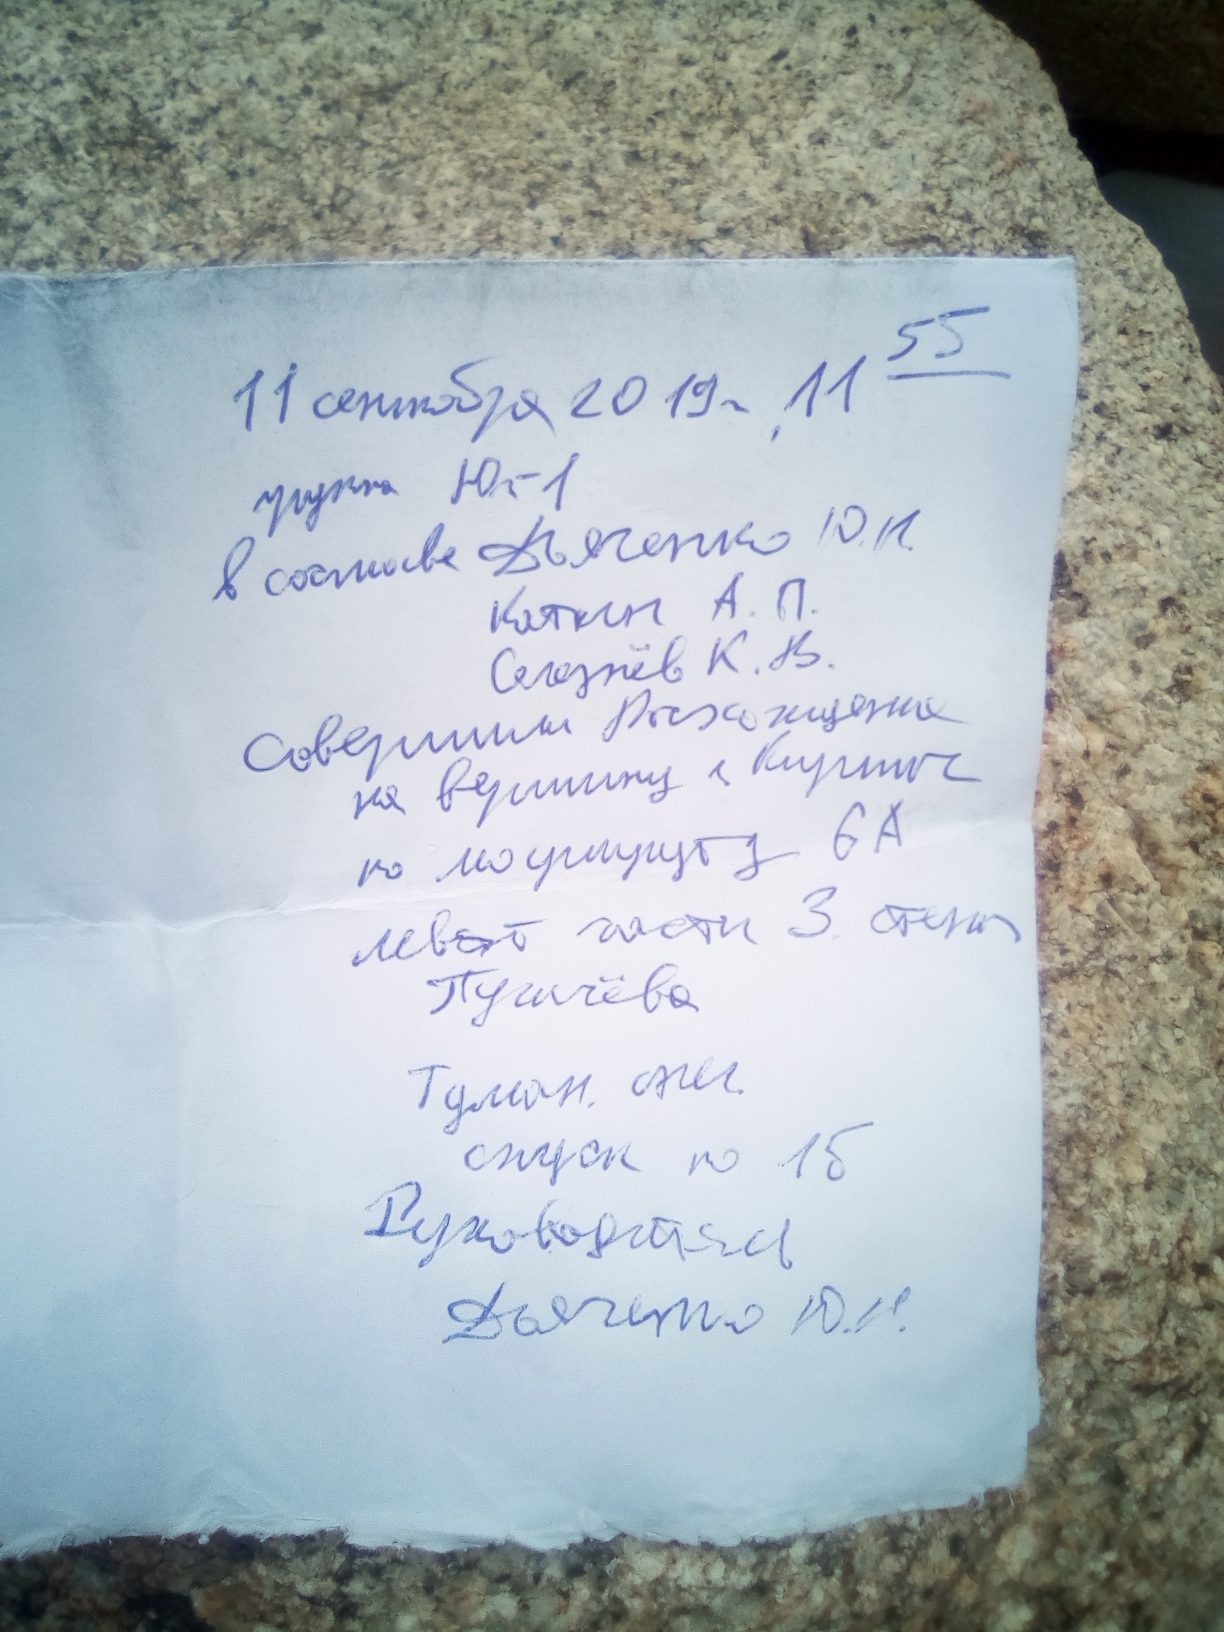 11 сентября 2019г, 11 55
группа Юг-1
в составе Дьяченко Ю.Н.
Каткин А. П.
Селезнёв К. В.
Совершили Восхождение
на вершину г Кирпич
по маршруту 6А
левой части З. стены
Пугачёва
Туман. снег.
спуск по 1б
Руководитель
Дьяченко Ю.Н.